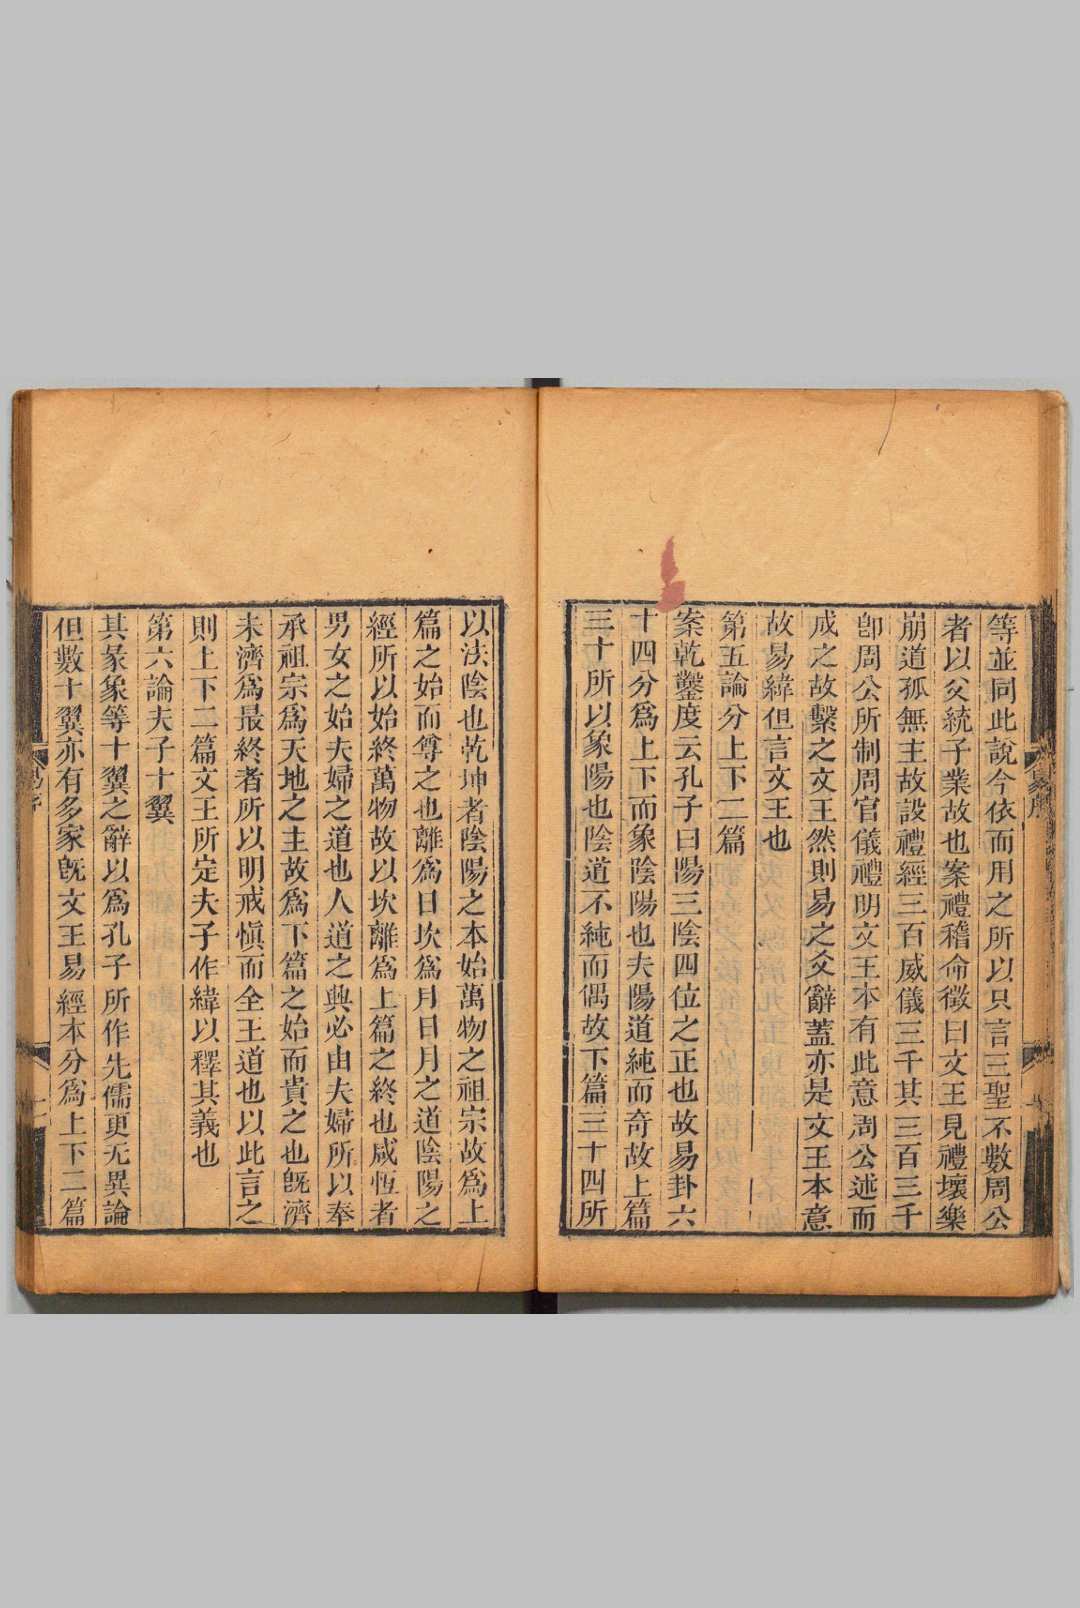 等並同此說今依而用之所以只言三聖不數周公
者以父統子業故也案禮稽命徵曰文王見禮壞樂
崩道孤無主故設禮經三百威儀三千其三百三千
卽周公所制周官儀禮明文王本有此意周公述而
成之故繫之文王然則易之爻辭蓋亦是文王本意
故易緯但言文王也
第五論分上下二篇
案乾鑿度云孔子曰陽三陰四位之正也故易卦六
十四分爲上下而象陰陽也夫陽道純而奇故上篇
三十所以象陽也陰道不純而偶故下篇三十四所
以法陰也乾坤者陰陽之本始萬物之祖宗故爲上
篇之始而尊之也離爲日坎爲月日月之道陰陽之
經所以始終萬物故以坎離爲上篇之終也咸恆者
男女之始夫婦之道也人道之興必由夫婦所以奉
承祖宗爲天地之主故爲下篇之始而貴之也旣濟
未濟爲最終者所以明戒愼而全王道也以此言之
則上下二篇文王所定夫子作緯以釋其義也
第六論夫子十翼
其彖象等十翼之辭以爲孔子所作先儒更无異論
但數十翼亦有多家旣文王易經本分爲上下二篇